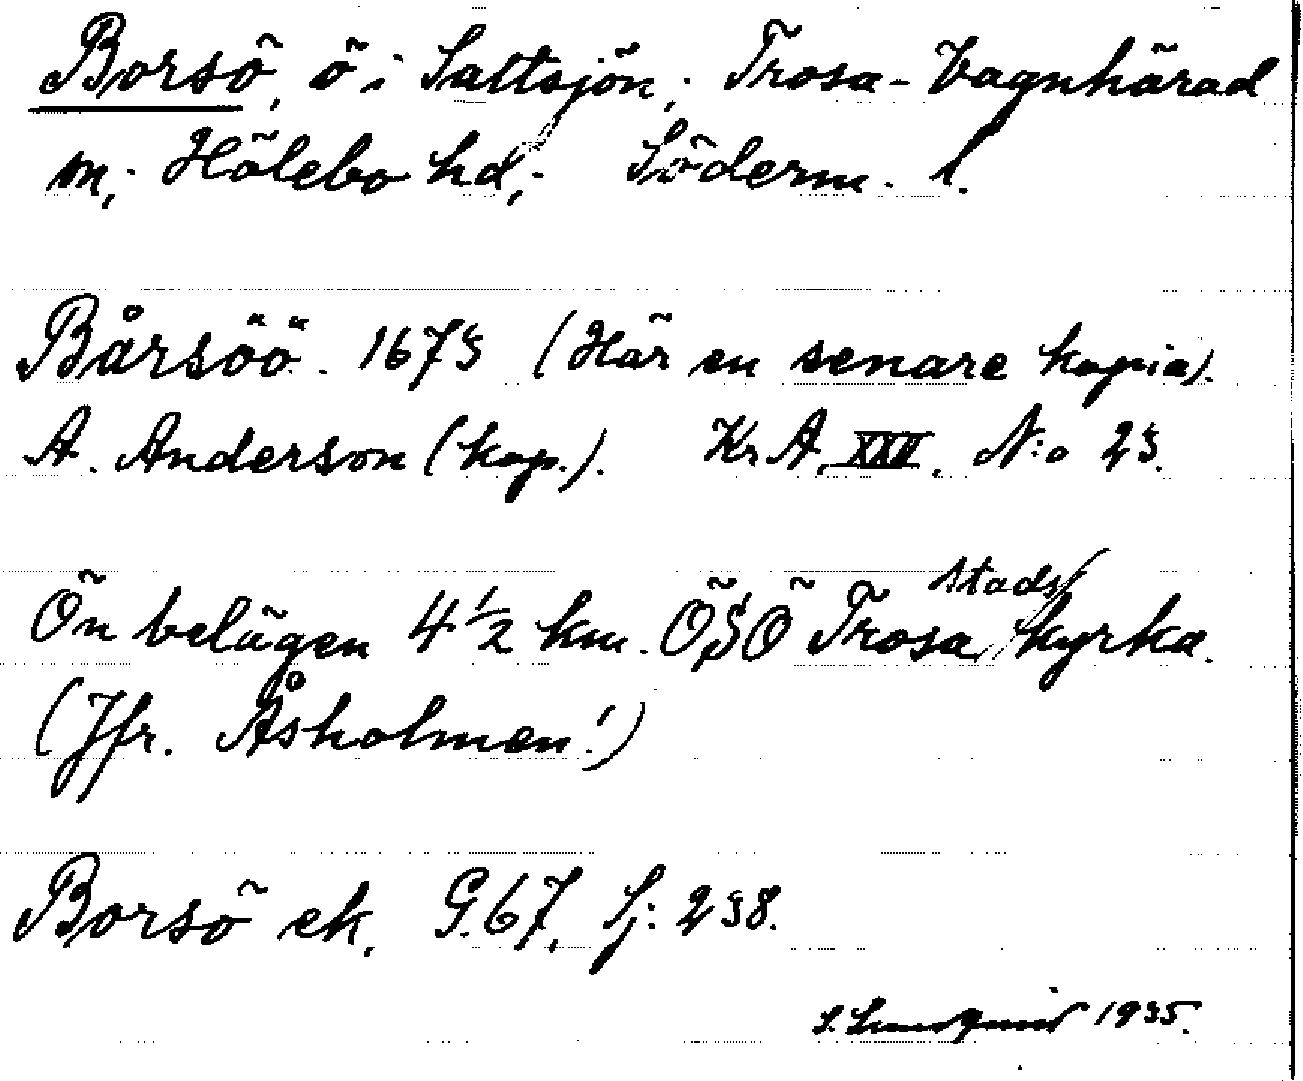 Borsö, ö i Saltsjön; Trosa-Vagnhärad
m; Hölebo hd; Söderm. l.
Bårsöö. 1673 (Här en senare kopia).
A. Anderson (kop.). Kr A. XXII. N:o 23.
Ön belägen 4 1/2 km. ÖSÖ Trosa stads kyrka.
(Jfr. Åsholmen!)
Borsö ek. G.67, Sj: 238.
S. Lundquist 1935.